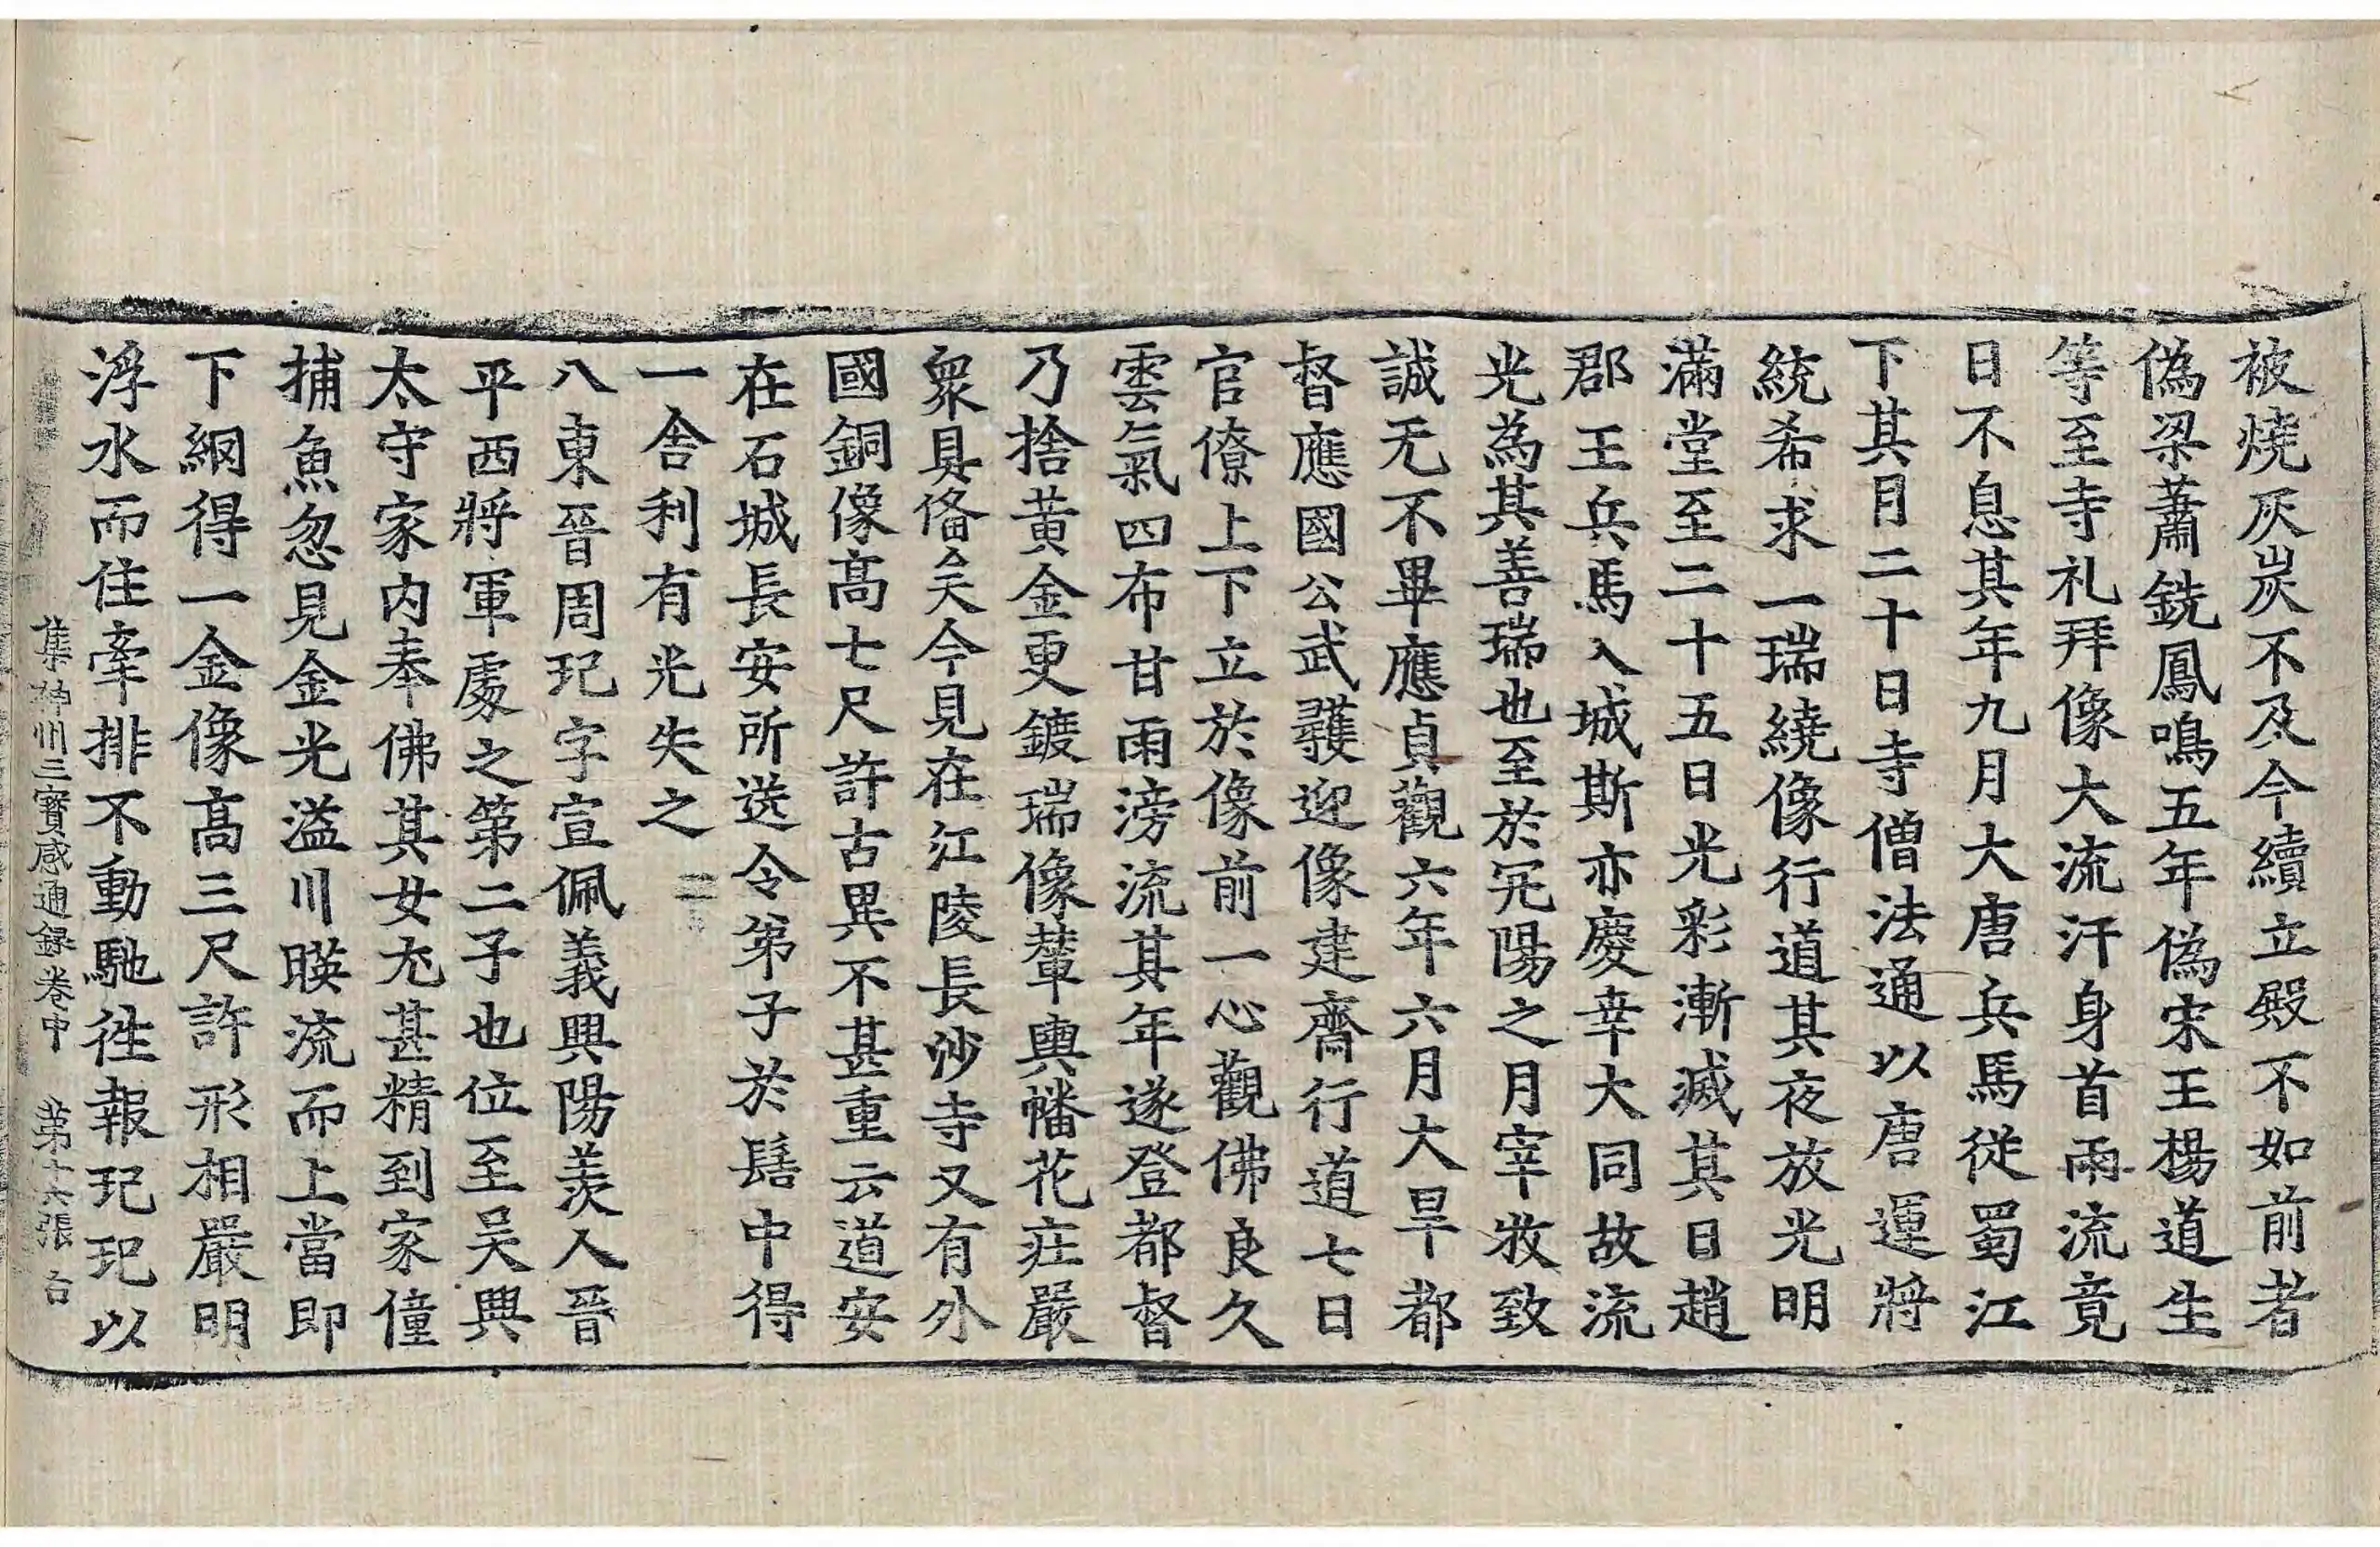 被燒灰炭不及今續立殿不如前者
偽梁蕭銑鳳鳴五年偽宋王楊道生
等至寺礼拜像大流汗身首雨流竟
日不息其年九月大唐兵馬從蜀江
下其月二十日寺僧法通以唐運將
統希求一瑞繞像行道其夜放光明
滿堂至二十五日光彩漸滅其日趙
郡王兵馬入城斯亦慶幸大同故流
光為其善瑞也至於冗陽之月宰牧致
誠无不畢應貞觀六年六月大旱都
督應國公武彠迎像建齋行道七日
官僚上下立於像前一心觀佛良久
雲氣四布甘雨滂流其年遂登都督
乃捨黃金更鍍瑞像輦輿幡花庄嚴
眾具俻矣今見在江陵長沙寺又有外
國銅像髙七尺許古異不甚重云道安
在石城長安所送令弟子於髻中得
一舎利有光失之
八東晉周玘字宣佩義興陽羨人晉
平西將軍處之第二子也位至吳興
太守家內奉佛其女尤甚精到家僮
捕魚忽見金光溢川暎流而上當即
下網得一金像髙三尺許形相嚴明
浮水而住牽排不動馳徃報玘玘以
集神州三寶感通録卷中 第十六張 台